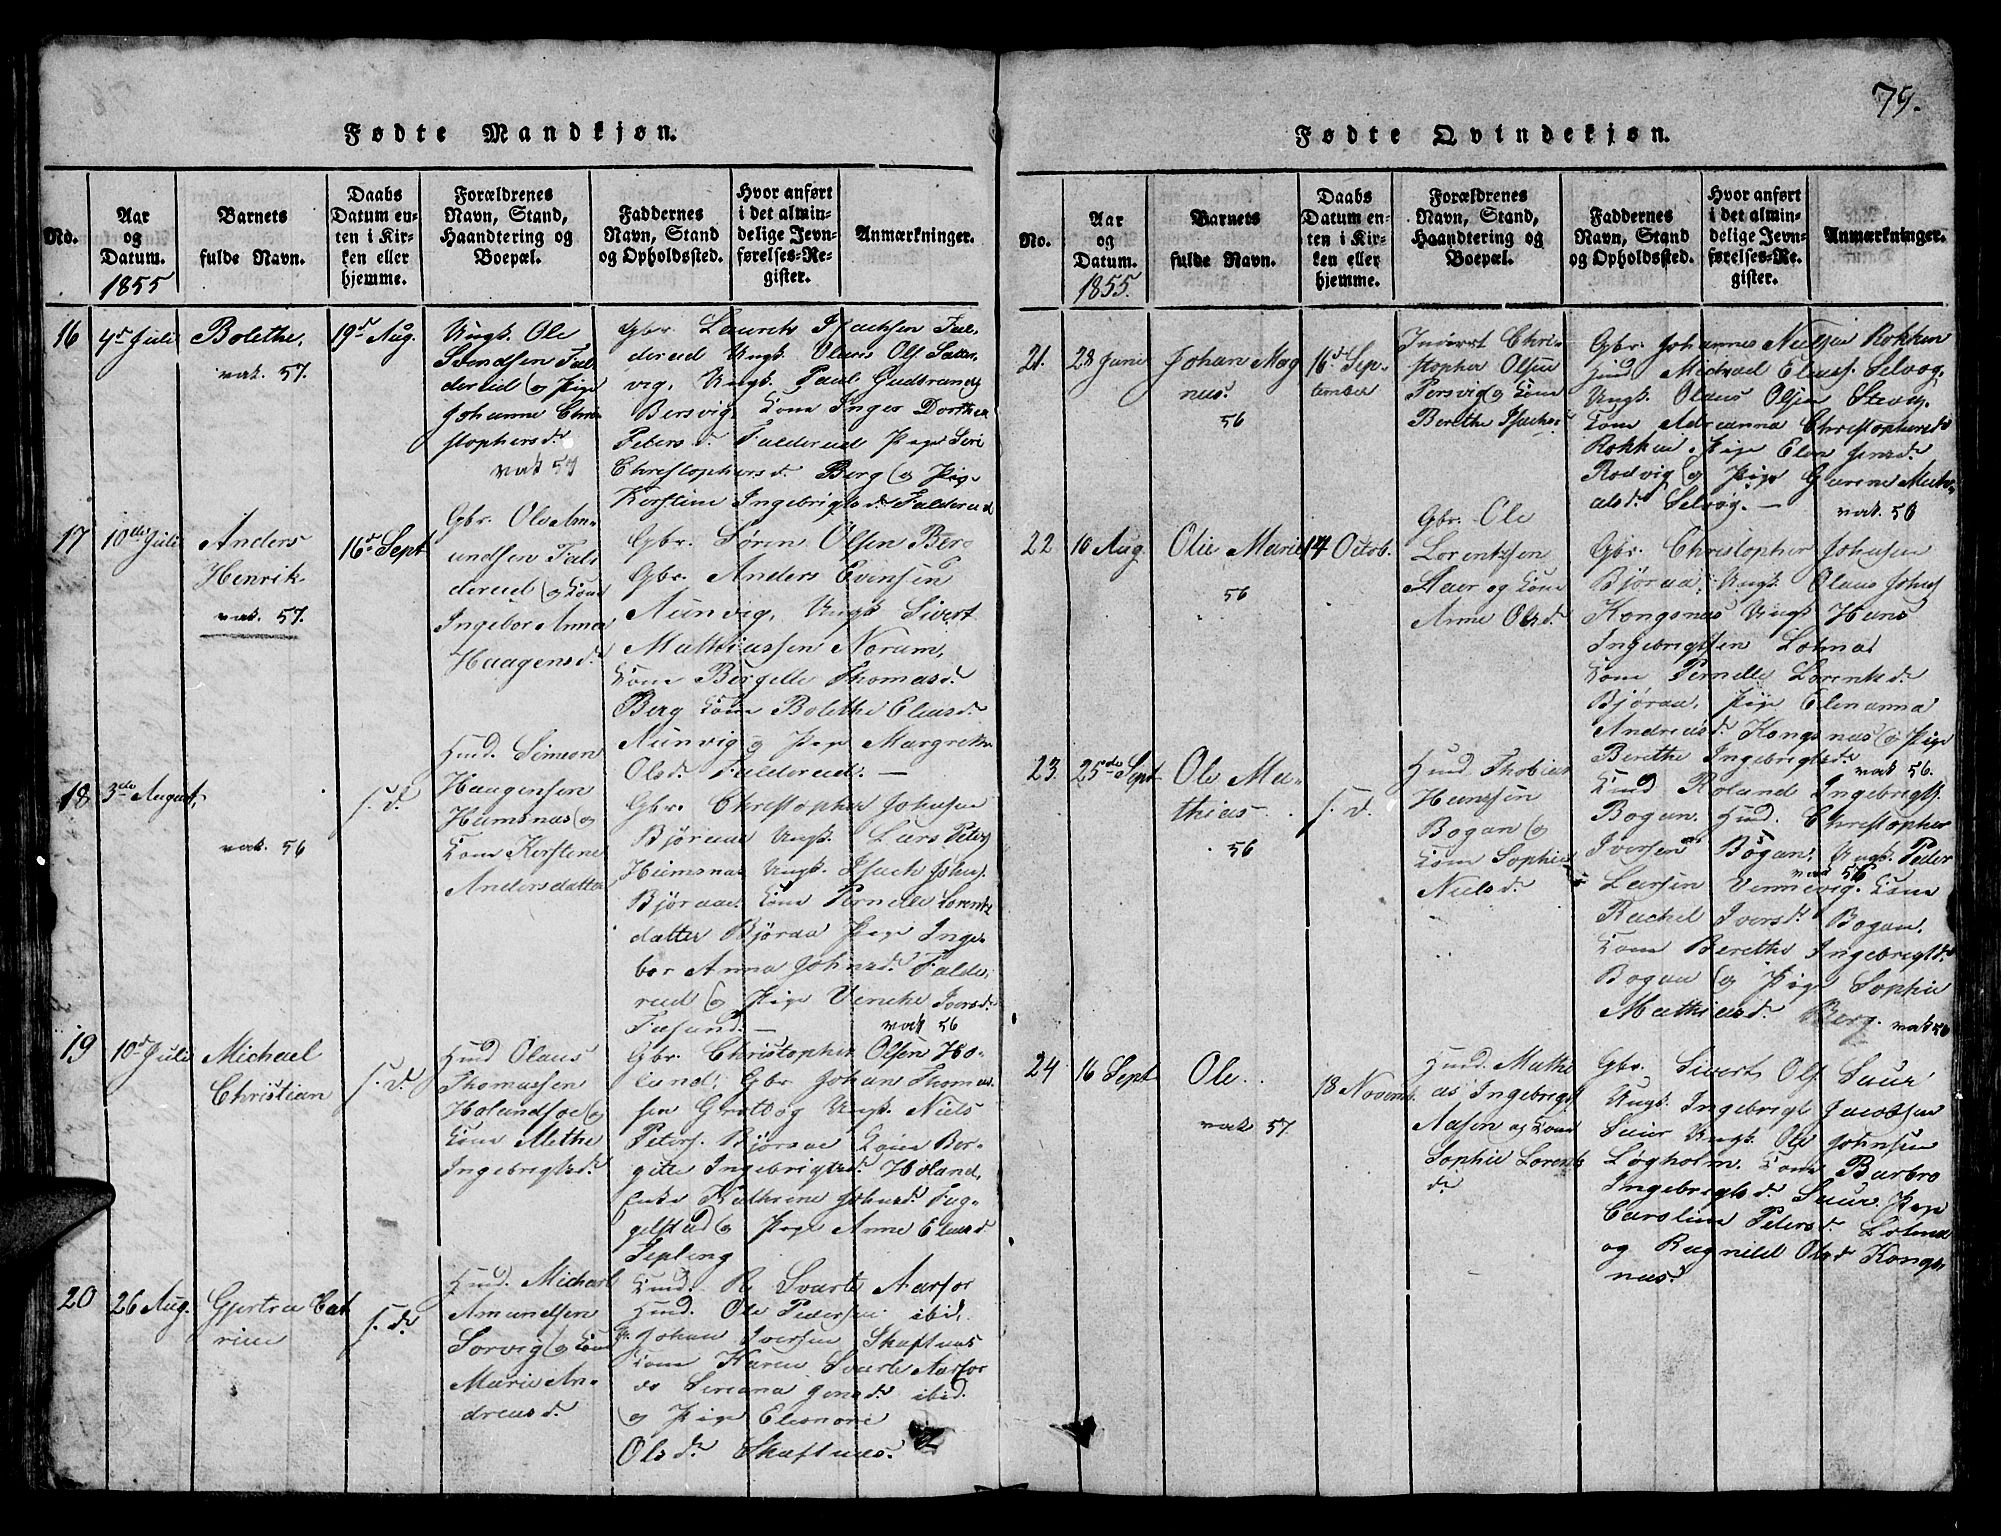 79.
Fødte Mandkjøn.
No.
Aar
og
Datum.
1855
Barnets
fulde Navn.
Daabs
Datum en-
ten i Kir-
ken eller
hjemme.
Forældrenes
Navn, Stand,
Haandtering og
Boepæl.
Faddernes
Navn, Stand
og Opholdssted.
Hvor anført
i det almin-
delige Jevn-
førelses-Re-
gister.
Anmærkninger.
16
4d Juli
Bolethe,
vak. 57.
19d Aug.
Ungk. Ole
Svendsen Fal-
dereid og Pige
Johanne Chri-
stophersd.
vak 57
Gbr. Laurets Isachsen Fal-
dereid Ungk. Olaus Ols Satter-
vig, Ungk. Paul Gudbrands
Bersvig, Kone Inger Dorthea
Peters d. Faldereid Pige Seri
Christophersd. Berg og Pige
Kerstine Ingebrigtsd. Faldereid
17
10de Juli
Anders
Henrik
vak. 57.
16d Sept
Gbr. Ole Am-
undsen Fal-
dereid og Kone
Ingebor Anna
Haagensd.
Gbr. Søren Olsen Berg
Gbr. Anders Evensen
Aunvig, Ungk Sivert
Mathiassen Norum,
Kone Bergelle Thomasd.
Berg Kone Bolethe Eliasd.
Aunvig og Pige Margrethe
Olsd. Faldereid. —
18
3de August,
vak. 56
s. d.
Huusmd. Simeon
Haagensen
Humsnæs og
Kone Kerstine
Andersdatter
Gbr. Christopher Johnsen
Bjøraa Ungk. Lars Peters
Humsnæs Ungk. Isach Johns.
Bjøraae Kone Pernelle Lorentz
datter Bjøraa Pige Inge-
bor Anna Johnsd. Falde-
reid og Pige Verike Iversd.
Fuesund. —
vak 56
19
10d Juli
Michael
Christian
s. d.
Huusmd Olaus
Thomassen
Holandsøe og
Kone Methe
Ingebrigtsd.
Gbr. Christopher Olsen Ho-
land, Gbr Johan Thomas-
sen Grøtvog Ungk. Niels
Peters. Bjøraae Kone Ber-
gitte Ingebrigtsd. Holand,
Enke Kathrine Johnsd. Tug-
gelstad og Pige Anne Eliasd
Tepling
20
26 Aug.
Gjertru Cat
rine
s. d.
Huusmd. Michael
Amundsen
Sørvig og Kone
Marie An-
dreasd.
R. Svarte Aarfor
Ole Pedersen ibid.
Johan Iversen Skaftnæs
Kone Karen Svarte Aarfor
do Seriana Jensd. ibid.
og Pige Eleonore
Olsd. Skaftnæs.
Fødte Qvindekjøn.
No.
Aar
og
Datum.
1855.
Barnets
fulde Navn.
Daabs
Datum en-
ten i Kir-
ken eller
hjemme.
Forældrenes
Navn, Stand,
Haandtering og
Boepæl.
Faddernes
Navn, Stand
og Opholdssted.
Hvor anført
i det almin-
delige Jevn-
førelses-Re-
gister.
Anmærkninger.
21.
28 June
Johan Mag
nus.
56
16d Sep-
tember
Inderst Chri-
stopher Olsen
Persvig og Kone
Berethe Isachsd.
Gbr. Johannes Nielsen Rokken
Michael Eliass. Selvog,
Ungk. Olaus Olsen
Kone Adrianna Christophersd.
Rokken, Pige Elen Jensd.
Rodvig og Pige Gurene Mathi-
asd. Selvog. —
vak. 56
22
10 Aug.
Olie Marie
56
14 Octob.
Gbr. Ole
Lorentzsen
Aaer og Kone
Anne Olsd.
Gbr. Christopher Johnsen
Bjøraa, Ungk. Olaus Johns
Kongsnæs Ungk Hans
Ingebrigtsen Lotma
Kone Pernelle Lorentzd.
Bjøraa, Pige Elenanna
Andreasd. Kongsnæs og Pige
Berethe Ingebrigtsd.
vak 56.
23.
25de Sept
Ole Ma-
thias
56
s. d.
Huusmd. Thobias
Hanssen
Bogan og
Kone Sophie
Nielsd.
Roland Ingebrigts.
Bogan. Christopher
Iversen Bogan, Ungk. Peder
vak 56
Larsen Vennevig, Kone
Rachel Iversd. Bogan,
Kone Berethe Ingebrigtsd.
Bogan og Pige Sophie
Mathiasd. Berg. vak 56
24
16 Sept
Ole
vak 57.
18 Novemb.
Huusmd. Mathi-
as Ingebrigts
Aasen og Kone
Sophie Lorentz
d.
Gbr. Sivert Ols Suur
Ungk. Ingebrigt Jacobsen
Suur Ungk Ole Johnsen
Løgholm. Kone Barbro
Ingebrigtsd. Suur. Pige
Caroline Petersd. Lotma
og Ragnild Olsd. Kongs-
næs.